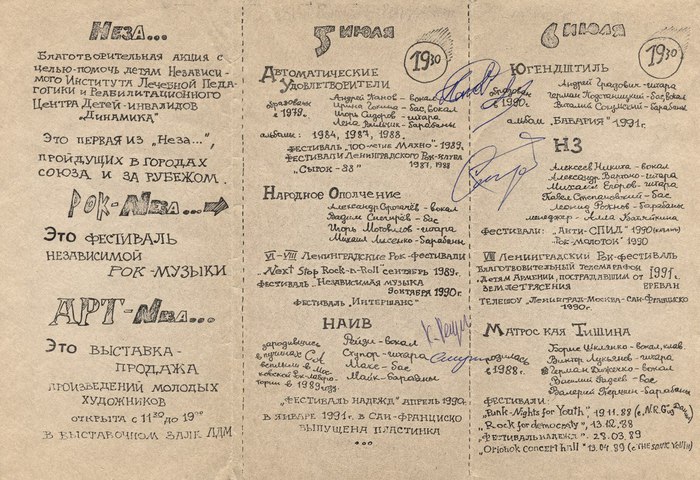 Неза...
Благотворительная акция с
целью помочь детям Независи-
мого Института Лечебной Педа-
гогики и Реабилитационного
Центра Детей-инвалидов
"Динамика"
Это первая из „Неза...",
пройдущих в городах
Союза и за рубежом.
Рок-Неза...
Это фестиваль
независимой
рок-музыки
Арт-Неза...
Это выставка-
продажа
произведений молодых
художников
открыта с 11 30 до 19 00
в выставочном зале ЛДМ
5 июля
19 30
Автоматические
Удовлетворители
образованы
в 1979.
Андрей Панов - вокал
Ирина - бас, вокал
Игорь Сидоров - гитара
Лена - барабаны
альбомы: 1984, 1987, 1988.
фестиваль "100-летие Махно"-1989.
Фестивали Ленинградского Рок-клуба
1987, 1988
"Сырок-88"
Народное Ополчение
Александр Строгачёв - вокал
Вадим Снигирёв - бас
Игорь Мотовилов - гитара
Михаил Лисенко - барабаны
VI-VIII Ленинградские Рок-фестивали
„Next Stop Rock-n-Roll" сентябрь 1989.
фестиваль „Независимая музыка
октября 1990г.
фестиваль "Интершанс"
Наив
зародившись
в пучинах СА
всплыли в Мо-
сковской Рок-лабора-
тории в 1989 году.
- вокал
- гитара
Макс - бас
Майк - барабаны
„Фестиваль надежд" апрель 1990г.
в январе 1991г. в Сан-Франциско
выпущена пластинка
...
6 июля
19 30
Югендштиль
образован
в 1990.
Андрей Градович - гитара
Герман Подстаницкий - бас, вокал
Виталий - барабаны
альбом „Бавария" 1991г.
НЗ
Алексеев Никита - вокал
Александр - гитара
Михаил Егоров - гитара
Павел Степановский - бас
Леонид - барабаны
менеджер - Алла
Фестивали: "Анти-СПИД" 1990
"Рок-молоток" 1990
VIII Ленинградский Рок-фестиваль
Благотворительный телемарафон
„Детям Армении, пострадавшим от
землетрясения 1991г.
Ереван
Телешоу „Ленинград-Москва-Сан-Франциско
1990г.
Матросская Тишина
родилась
в 1988г.
Борис - вокал, клав.
Виктор Лукьянов - гитара
Герман - вокал
Василий Гадеев - бас
Валерий - барабаны
Фестивали:
"Punk-Nights for Youth", 19.11.88
„Rock for democraty", 13.12.88
„Фестиваль надежд". 28.03.89
"Oriohok concert hall" 13.04.89 (с THE SONIC YOUTH)